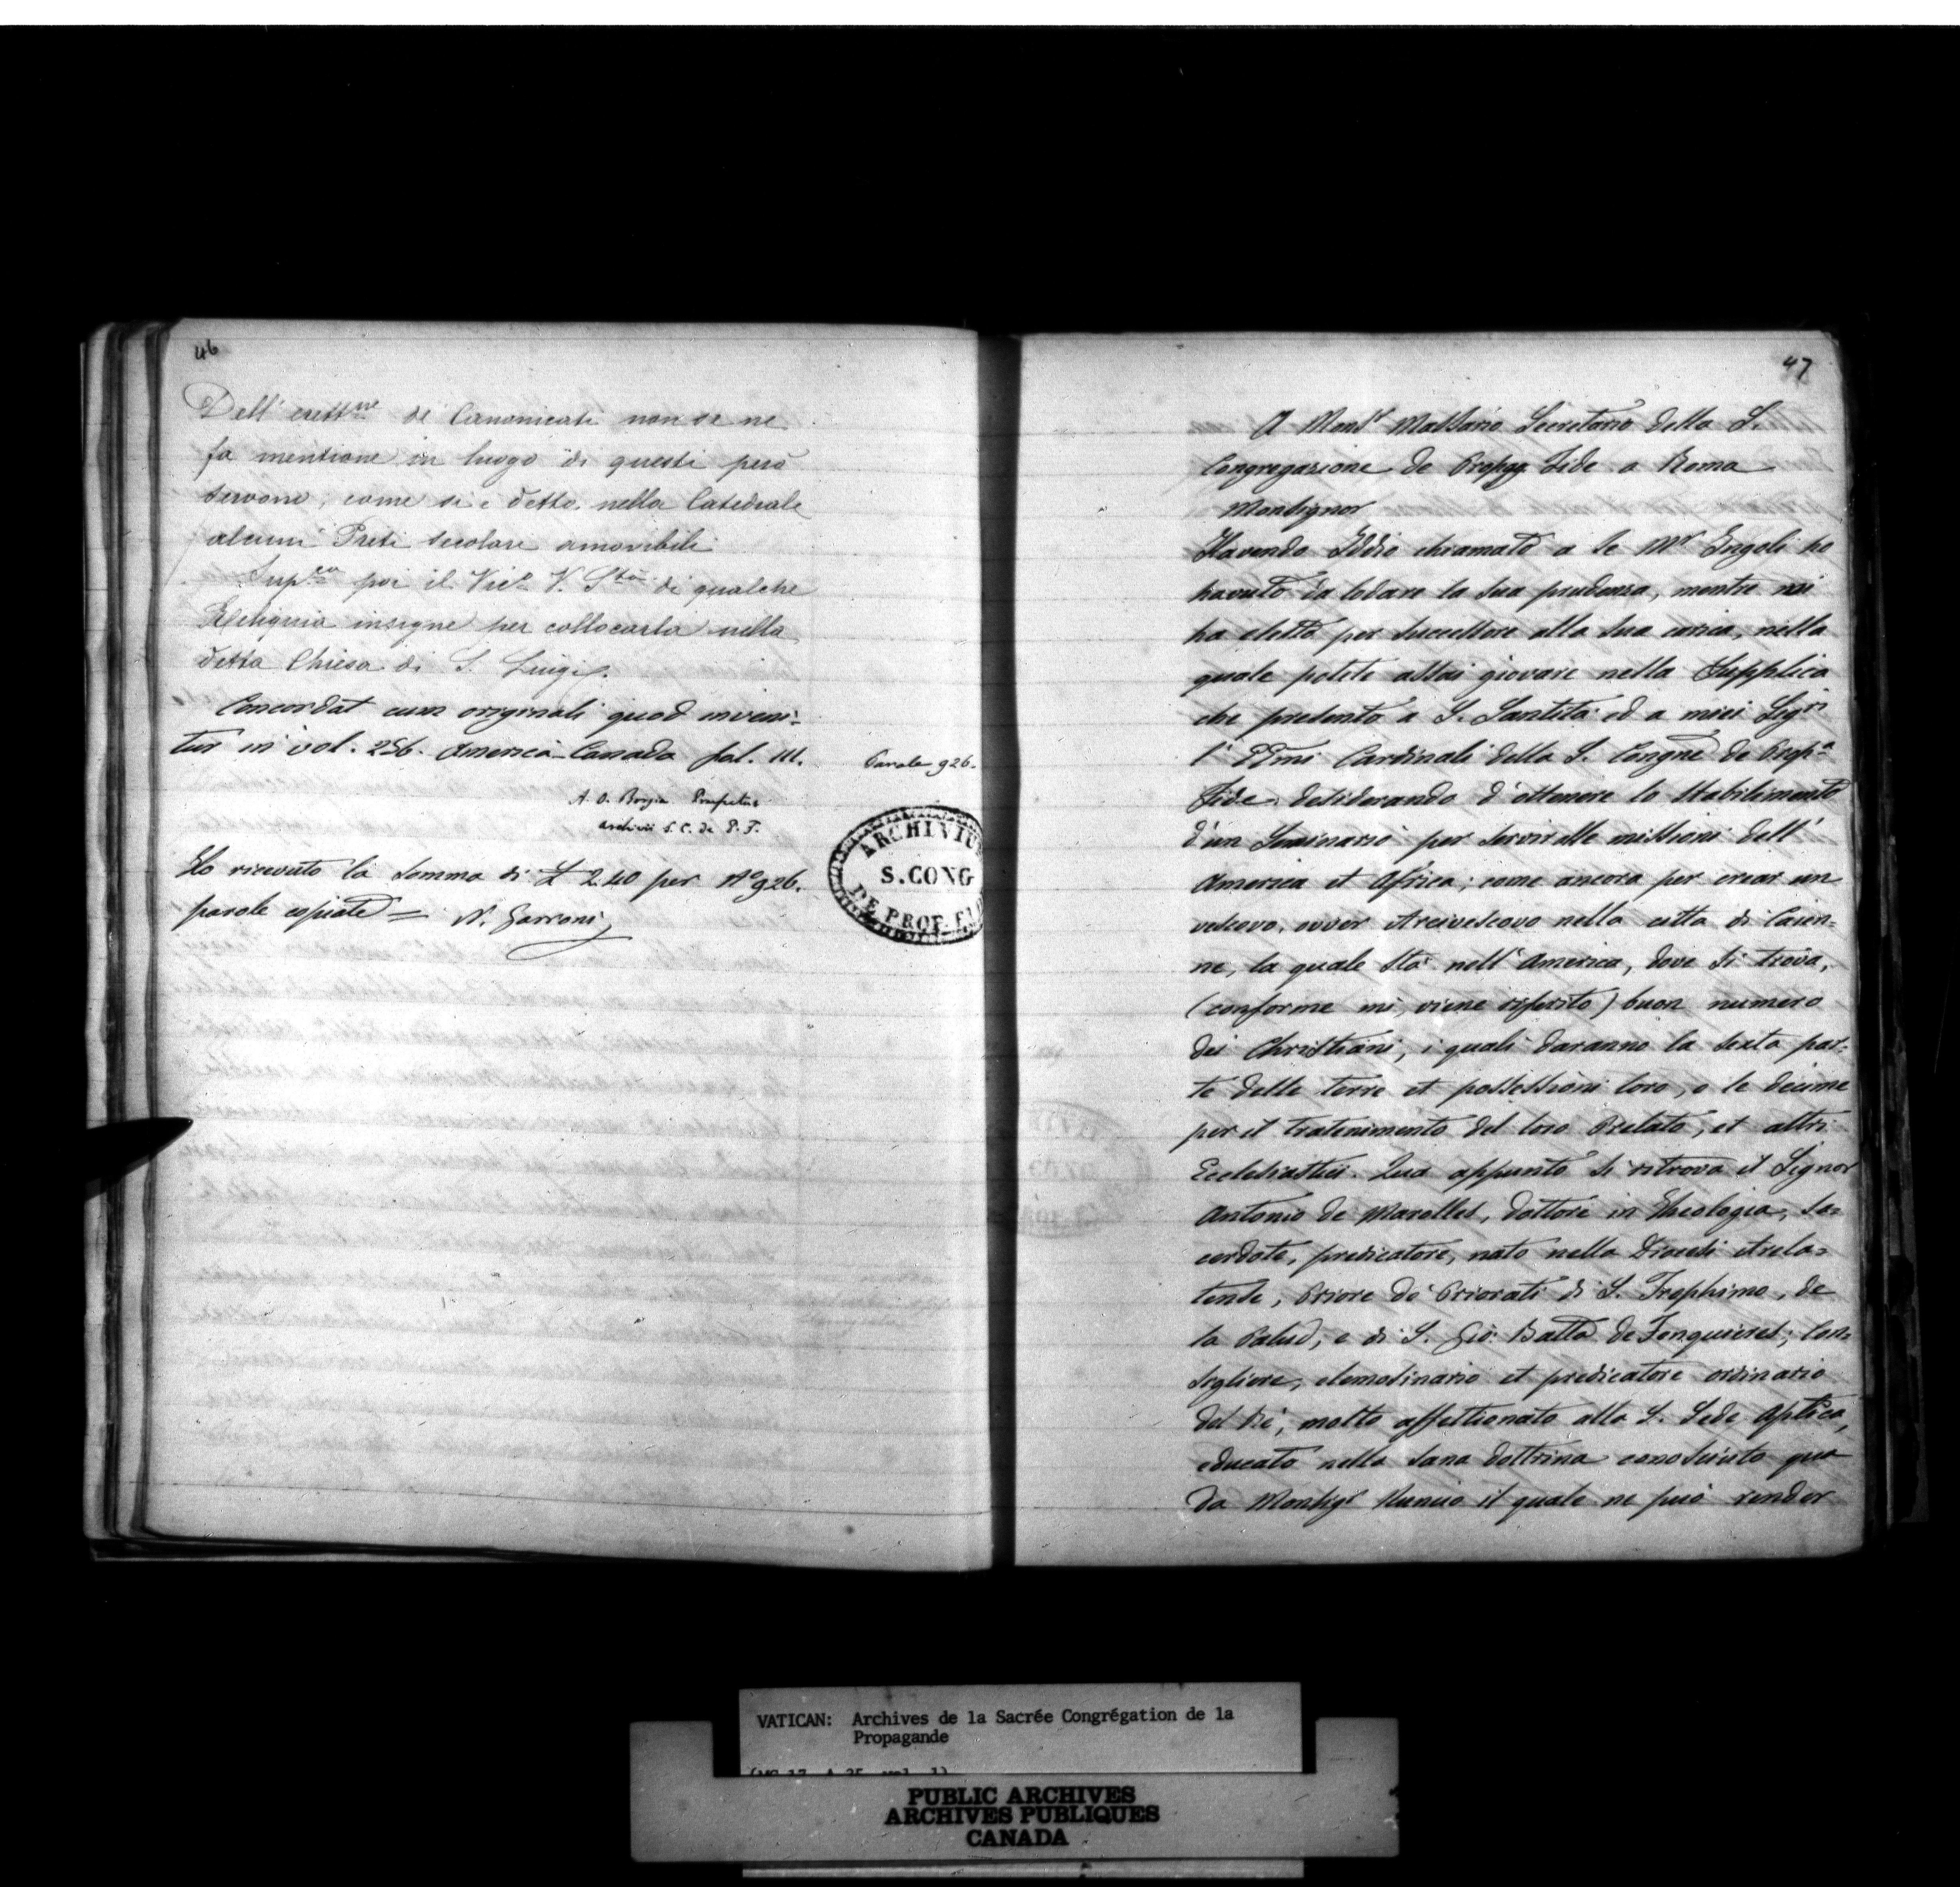 46
Dell' erett.ne di Canonicati non se ne
fa mentione in luogo di questi però
servono, come si è detto, nella Catedrale
alcuni Preti secolari amovibili
Sup.ca poi il Vic.o V. S.tà di qualche
Reliquia insigne per collocarla nella
detta Chiesa di S. Luigi.
Concordat cum originali quod inveni-
tur in vol. 256. America-Canada fol. 111.
Parole 926.
A. O. Borgia Praefectus
archivii S. C. de P. F.
ARCHIVIU
S. CONG
DE PROP. FID
Ho ricevuto la somma di £ 2.40 per N° 926.
parole copiate = N. Garroni
47
A Mons.r Massario Secretario della S.
Congregazione de Propag Fide a Roma
Monsignor
Havendo Iddio chiamato a se M.r Ingoli ho
havuto da lodare la sua prudenza, mentre voi
ha eletto per successore alla sua carica, nella
quale potete assai giovare nella Supplica
che presento a S. Santità ed a miei Sig.ri
l' EEmi Cardinali della S. Congne de Prop.a
Fide desiderando d'ottenere lo stabilimento
d'un Seminario per servir alle missioni dell'
America et Africa; come ancora per crear un
vescovo, ovver Arcivescovo nella citta di Caien-
ne, la quale sta nell' America, dove si trova,
(conforme mi viene riferito) buon numero
dei Christiani, i quali daranno la sesta par-
te delle terre et possessioni loro, o le decime
per il tratenimento del loro Prelato, et altri
Ecclesiastici. Qua appunto si ritrova il Signor
Antonio de Marolles, dottore in Theologia, sa-
cerdote, predicatore, nato nella Diocesi Arela-
tense, Priore de Priorati di S. Trophimo, de
la Palud, e di S. Gio: Batta de Fonquieres; Con-
sigliere, elemosinario et predicatore ordinario
del Rè, molto affettionato alla S. Sede Aplica,
educato nella sana dottrina conosciuto qua
da Monsig.r Nuncio il quale ne può render
VATICAN: Archives de la Sacrée Congrégation de la
Propagande
(MG 17, A 25, vol. 1)
PUBLIC ARCHIVES
ARCHIVES PUBLIQUES
CANADA